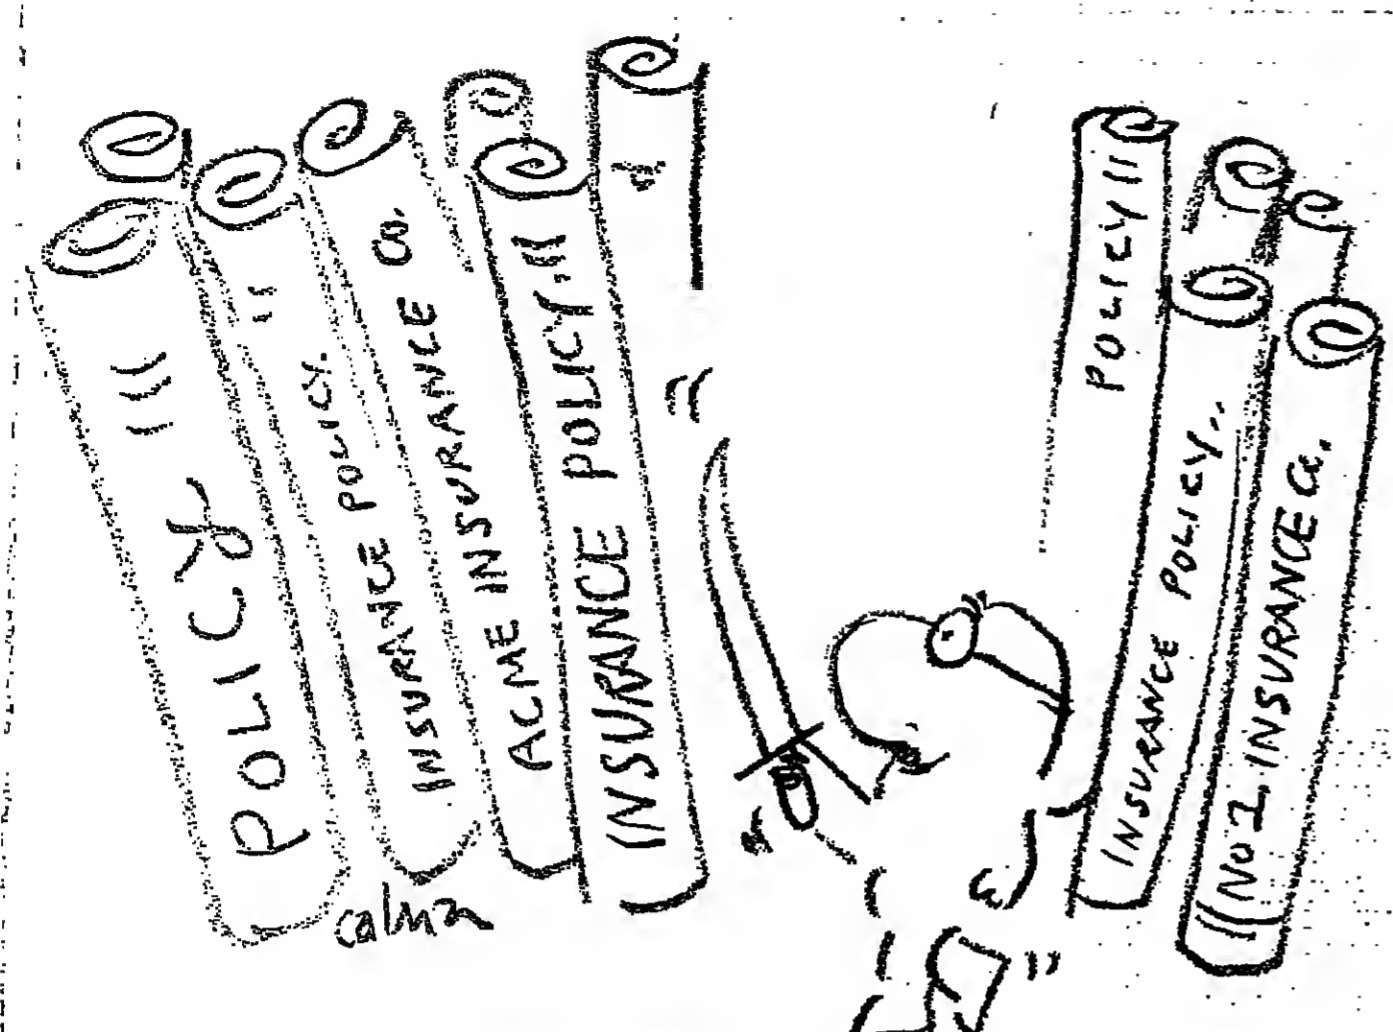 POLICY
INSURANCE POLICY.
INSURANCE CO.
ACME INSURANCE POLICY.
INSURANCE
POLICY
INSURANCE POLICY.
No 1 INSURANCE Co.